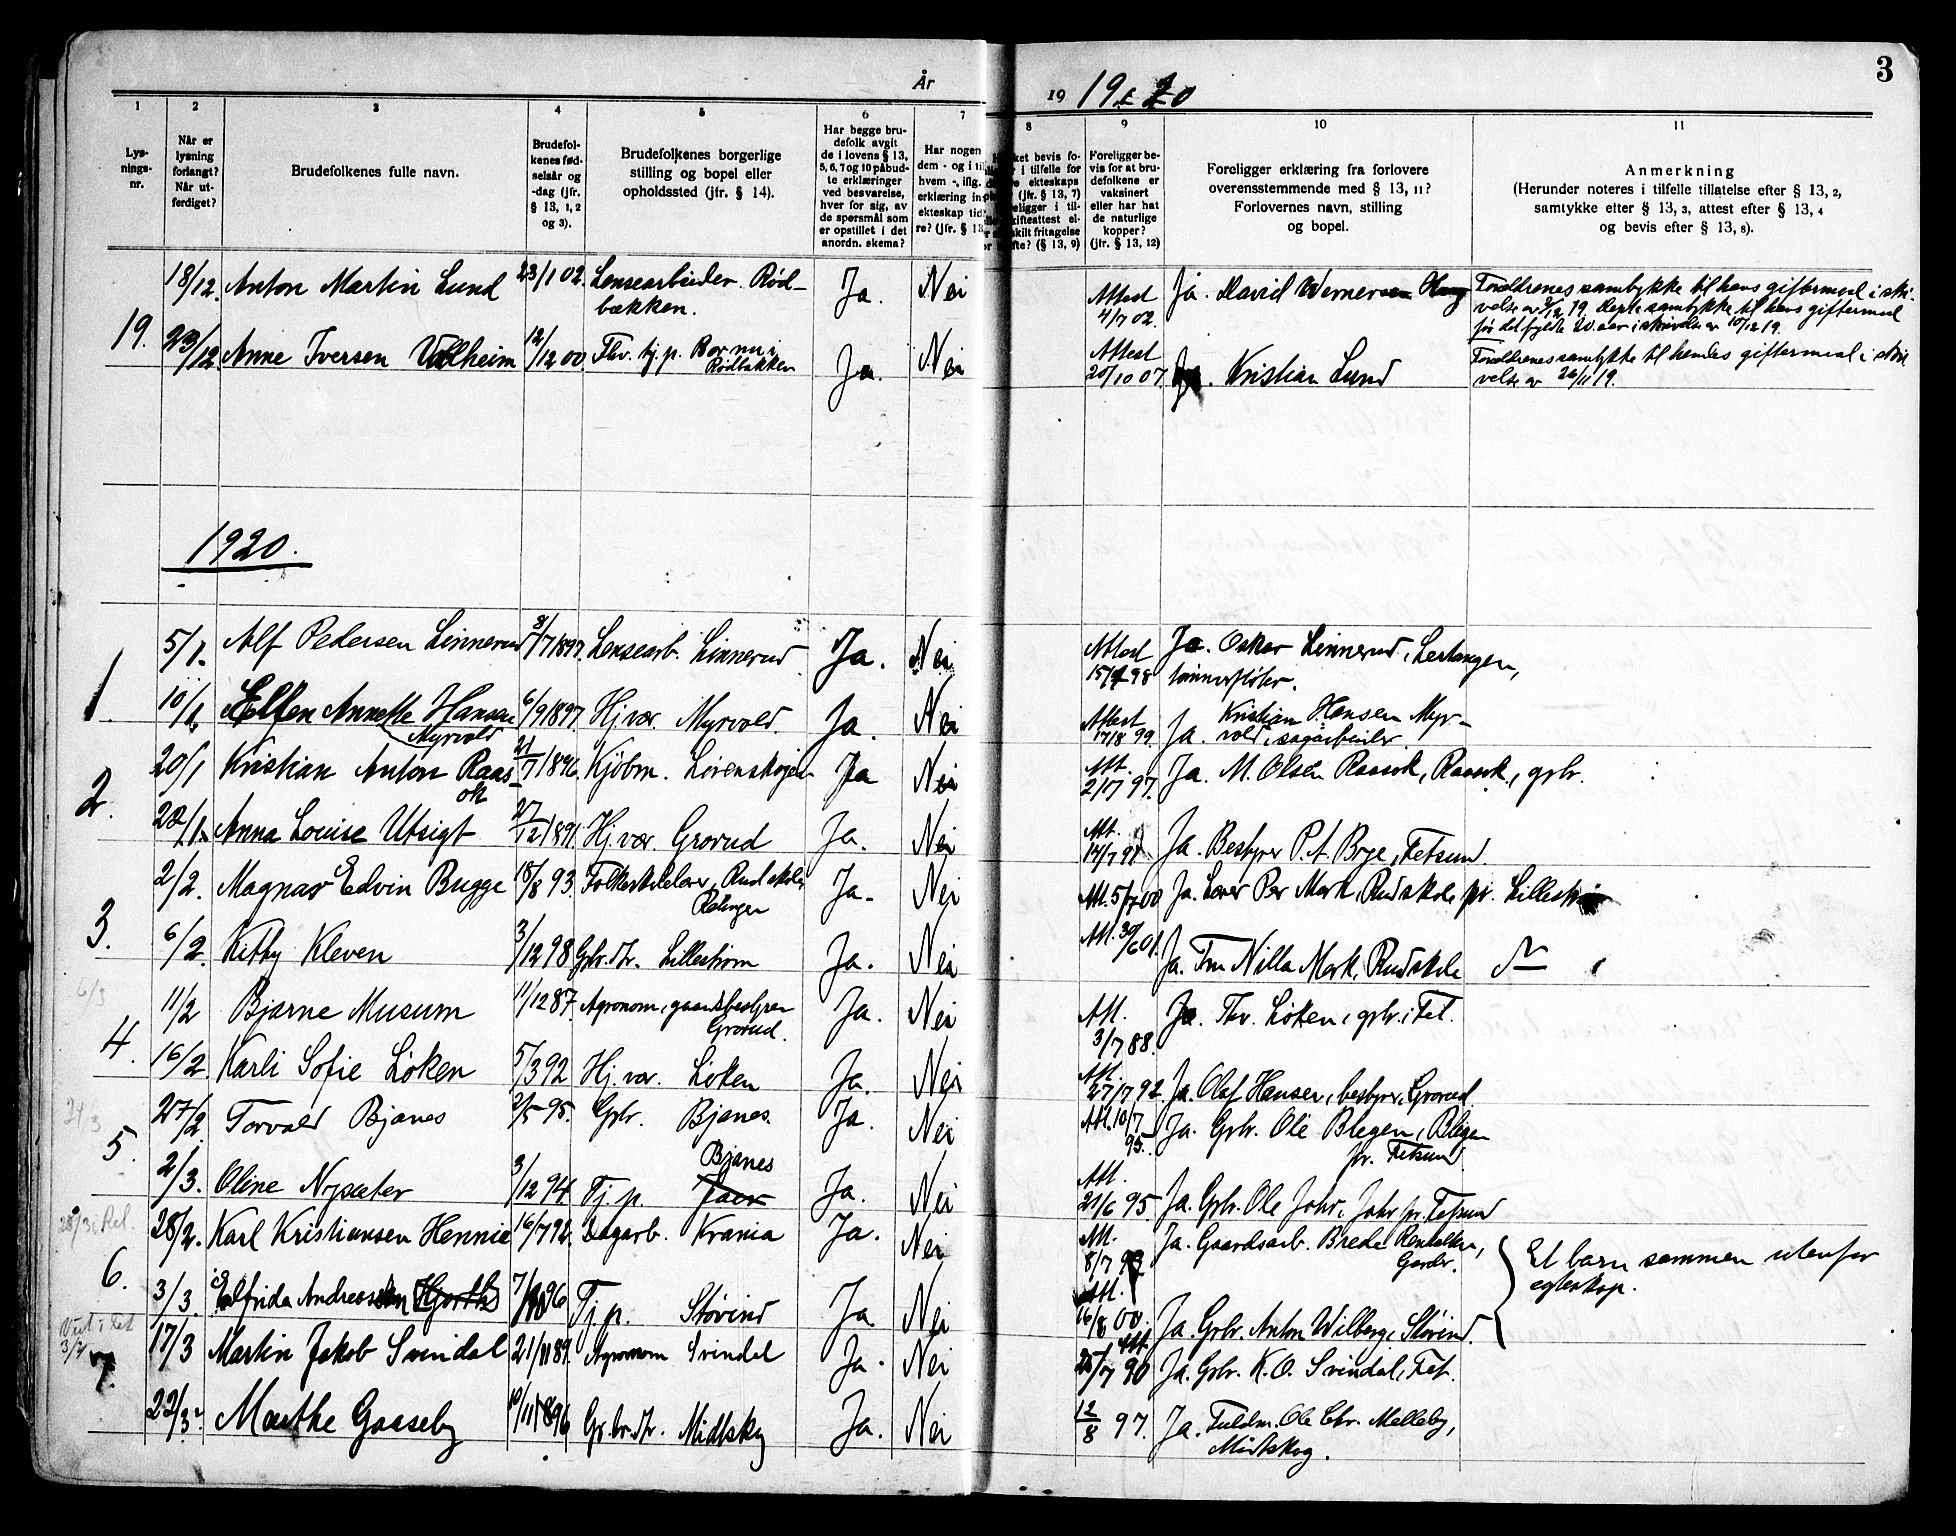 3
År
19 19 20
1
2
3
4
5
6
7
8
9
10
11
Lys-
nings-
nr.
Når er
lysning
forlangt?
Når ut-
ferdiget?
Brudefolkenes fulle navn.
Brudefol-
kenes fød-
selsår og
-dag (jfr.
§ 13, 1, 2
og 3).
Brudefolkenes borgerlige
stilling og bopel eller
opholdssted (jfr. § 14).
Har begge bru-
defolk avgit
de i lovens § 13,
5, 6, 7 og 10 påbud-
te erklæringer
ved besvarelse,
hver for sig, av
de spørsmål som
er opstillet i det
anordn. skema?
Har nogen
dem - og i til
hvem -, iflg.
erklæring in
ekteskap tid
re? (jfr. § 13
ket bevis fo-
i tilfelle for
ekteskaps
(jfr. § 13, 7)
eligger i til-
skifteattest el-
skilt fritagelse
fte? (§ 13, 9)
Foreligger be-
vis for at bru-
defolkene er
vaksinert
eller har hat
de naturlige
kopper?
(jfr. § 13, 12)
Foreligger erklæring fra forlovere
overensstemmende med § 13, 11?
Forlovernes navn, stilling
og bopel.
Anmerkning
(Herunder noteres i tilfelle tillatelse efter § 13, 2,
samtykke efter § 13, 3, attest efter § 13, 4
og bevis efter § 13, 8).
18/12. Anton Martin Lund 23/1 02. Lensearbeider. Rød-
bækken. Ja. Nei Attest
4/7 02. Ja. David Wernersen Haug
Forældrenes samtykke til hans giftermaal i skri-
velse av 3/12 19. Depts samtykke til hans giftermaal
før det fyldte 20. aar i skrivelse av 10/12 19.
19. 23/12. Anne Iversen Valheim 12/12 00. Thv. tj. p. Bor nu i
Rødbækken Ja. Nei Attest
20/10 07. Ja. Kristian Lund
Forældrenes samtykke til hendes giftermaal i skri
velse av 26/11 19.
1920.
5/1. Alf Pedersen Linnerud 3/7 1897. Lensearb. Linnerud Ja. Nei Attest
15/7 98 Ja. Oskar Linnerud, Lertangen,
tømmerfløter.
1. 10/1. Ellen Annette Hansen
Myrvold 6/9 1897. Hj. vær. Myrvold. Ja. Nei Attest
17/8 99. Ja. Kristian Hansen Myr-
vold, sagarbeider.
2. 20/1 Kristian Anton Raas-
ok 21/7 1896. Kjøbm. Lørenskogen Ja Nei Att.
2/7 97. Ja. M. Olsen Raasok, Raasok, grbr.
22/1. Anna Louise Utsigt 27/12 1891. Hj. vær. Grorud Ja. Nei Att.
14/7 91 Ja. Bestyrer P. A. Brye, Fetsund.
3. 2/2. Magnar Edvin Bugge 18/8 93. Folkeskolelærer, Rud skole,
Rælingen Ja. Nei Att. 5/7 00 Ja. Lærer Per Mork, Rud skole pr. Lillestrøm
6/2. Kitty Kleven 3/12 98 Grbr. dtr. Lillestrøm Ja. Nei Att. 30/6 01. Ja. Fru Nilla Mork, Rud skole
6/3
4. 11/2 Bjarne Musum 11/12 87. Agronom, gaardsbestyrer
Grorud. Ja. Nei Att.
3/7 88. Ja. Thv. Løken, grbr. i Fet.
16/2. Karli Sofie Løken 5/3 92 Hj. vær. Løken Ja. Nei Att.
27/7 92. Ja. Olaf Hansen, bestyrer, Grorud.
24/3
5. 27/2. Torvald Bjanes 2/5 95. Grbr. Bjanes. Ja. Nei Att. 10/7
95. Ja. Grbr. Ole Blegen, Blegen
pr. Fetsund
2/3. Oline Nysæter 3/12 94. Tj. p. Bjanes
Jaer Ja. Nei Att.
21/6 95. Ja. Grbr. Ole Johr, Johr pr. Fetsund
28/3 i Ræl.
6. 28/2. Karl Kristiansen Hennie 16/7 92. Dagarb. Krania Ja. Nei Att.
8/7 92 Ja. Gaardsarb. Brede
Garder.
Et barn sammen utenfor
egteskap.
3/3. Elfrida Andreassen Hjorth 7/10 96 Tj. p. Støvind Ja Nei Att.
16/8 00. Ja. Grbr. Anton Wilberg, Støvind.
Viet i Fet
3/4
7. 17/3 Martin Jakob Svindal 21/11 89. Agronom Svindal Ja. Nei Att.
25/7 90 Ja. Grbr. K. O. Svindal, Fet.
22/3. Marthe Gaaseby 10/11 1896 Gr. br. dtr. Midtskog Ja. Nei 12/8 97. Ja. Fuldm. Ole Chr. Melleby,
Midtskog.